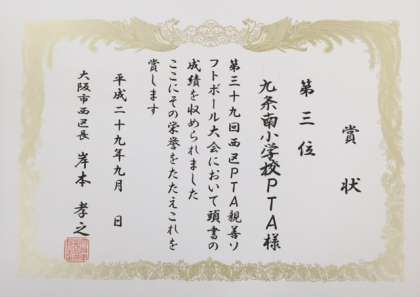 賞状
第三位
九条南小学校PTA様
第三十九回西区PTA親善ソ
フトボール大会において頭書の
成績を収められました
ここにその栄誉をたたえこれを
賞します
平成二十九年九月 日
大阪市西区長 岸本孝之